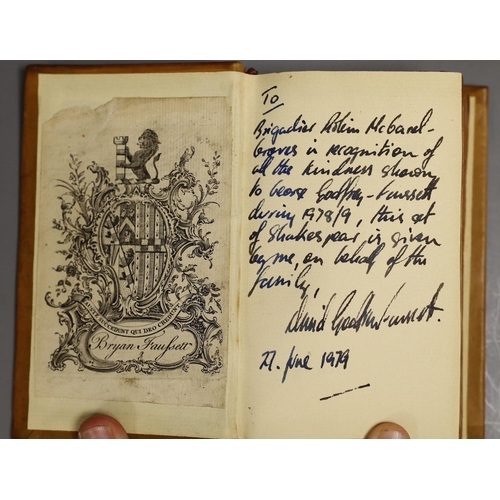 Bryan Faussett
To
Brigadier Robin McGarel-
Groves in recognition of
all the kindness shown
to George Godfrey-Faussett
during 1978/9, this set
of Shakespear, is given
by me, on behalf of the
family,
David Godfrey-Faussett.
27. June 1979